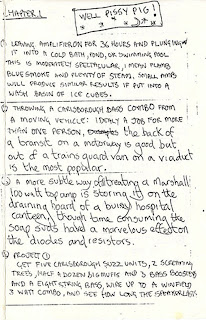 CHAPTER 1
WELL PISSY PIG!
① LEAVING AMPLIFIER ON FOR 36 HOURS AND PLUNGING
IT INTO A COLD BATH, POND, OR SWIMMING POOL
THIS IS MODERATELY SPECTACULAR, I MEAN FLAMES
BLUE SMOKE AND PLENTY OF STEAM, SMALL AMPS
WILL PRODUCE SIMILAR RESULTS IF PUT INTO A
WASH BASIN OF ICE CUBES.
② THROWING A CARLSBOROUGH BASS COMBO FROM
A MOVING VEHICLE: IDEALLY A JOB FOR MORE
THAN ONE PERSON, the back of
a transit on a motorway is good but
out of a trains guard van on a viaduct
is the most popular.
③ A more subtle way of treating a Marshall
100 watt top amp is storing it on the
draining board of a busy hospital
canteen, though time consuming the
soap suds have a marvellous effect on
the diodes and resistors.
④ PROJECT ①
GET FIVE CARLSBOROUGH SUZZ UNITS, 2 SCREAMING
TREES, HALF A DOZEN BIG MUFFS AND 3 BASS BOOSTERS
AND A EIGHT STRING BASS, WIRE UP TO A WINFIELD
3 WATT COMBO, AND SEE HOW LONG THE SPEAKER LASTS